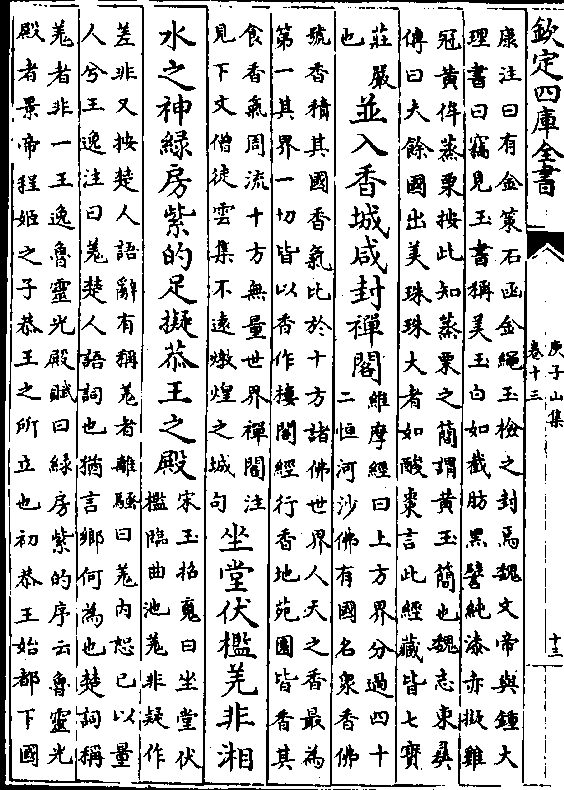 欽定四庫全書
庚子山集
卷十三
十三
康注曰有金策石函金繩玉檢之封焉魏文帝與鍾大
理書曰竊見玉書稱美玉白如截肪黑譬純漆赤擬雞
冠黄侔蒸栗按此知蒸栗之簡謂黄玉簡也魏志東彝
傳曰夫餘國出美珠珠大者如酸棗言此經藏皆七寶
莊嚴
也
並入香城咸封禪閣
維摩經曰上方界分過四十
二恒河沙佛有國名衆香佛
號香積其國香氣比於十方諸佛世界人天之香最為
第一其界一切皆以香作樓閣經行香地苑園皆香其
食香氣周流十方無量世界禪閣注
見下文僧徒雲集不遠燉煌之城句
坐堂伏檻羌非湘
水之神緑房紫的足擬恭王之殿
宋玉招䰟曰坐堂伏
檻臨曲池羌非疑作
差非又按楚人語辭有稱羌者離騷曰羌内恕已以量
人兮王逸注曰羌楚人語詞也猶言鄉何為也楚詞稱
羌者非一王逸魯靈光殿賦曰緑房紫的序云魯靈光
殿者景帝程姬之子恭王之所立也初恭王始都下國